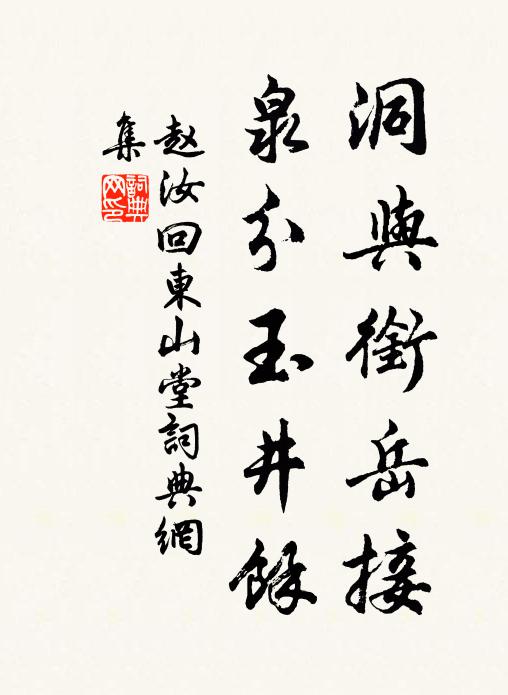 洞與銜岳接
泉分玉井餘
赵汝回東山堂詞典網
集
詞典
网印